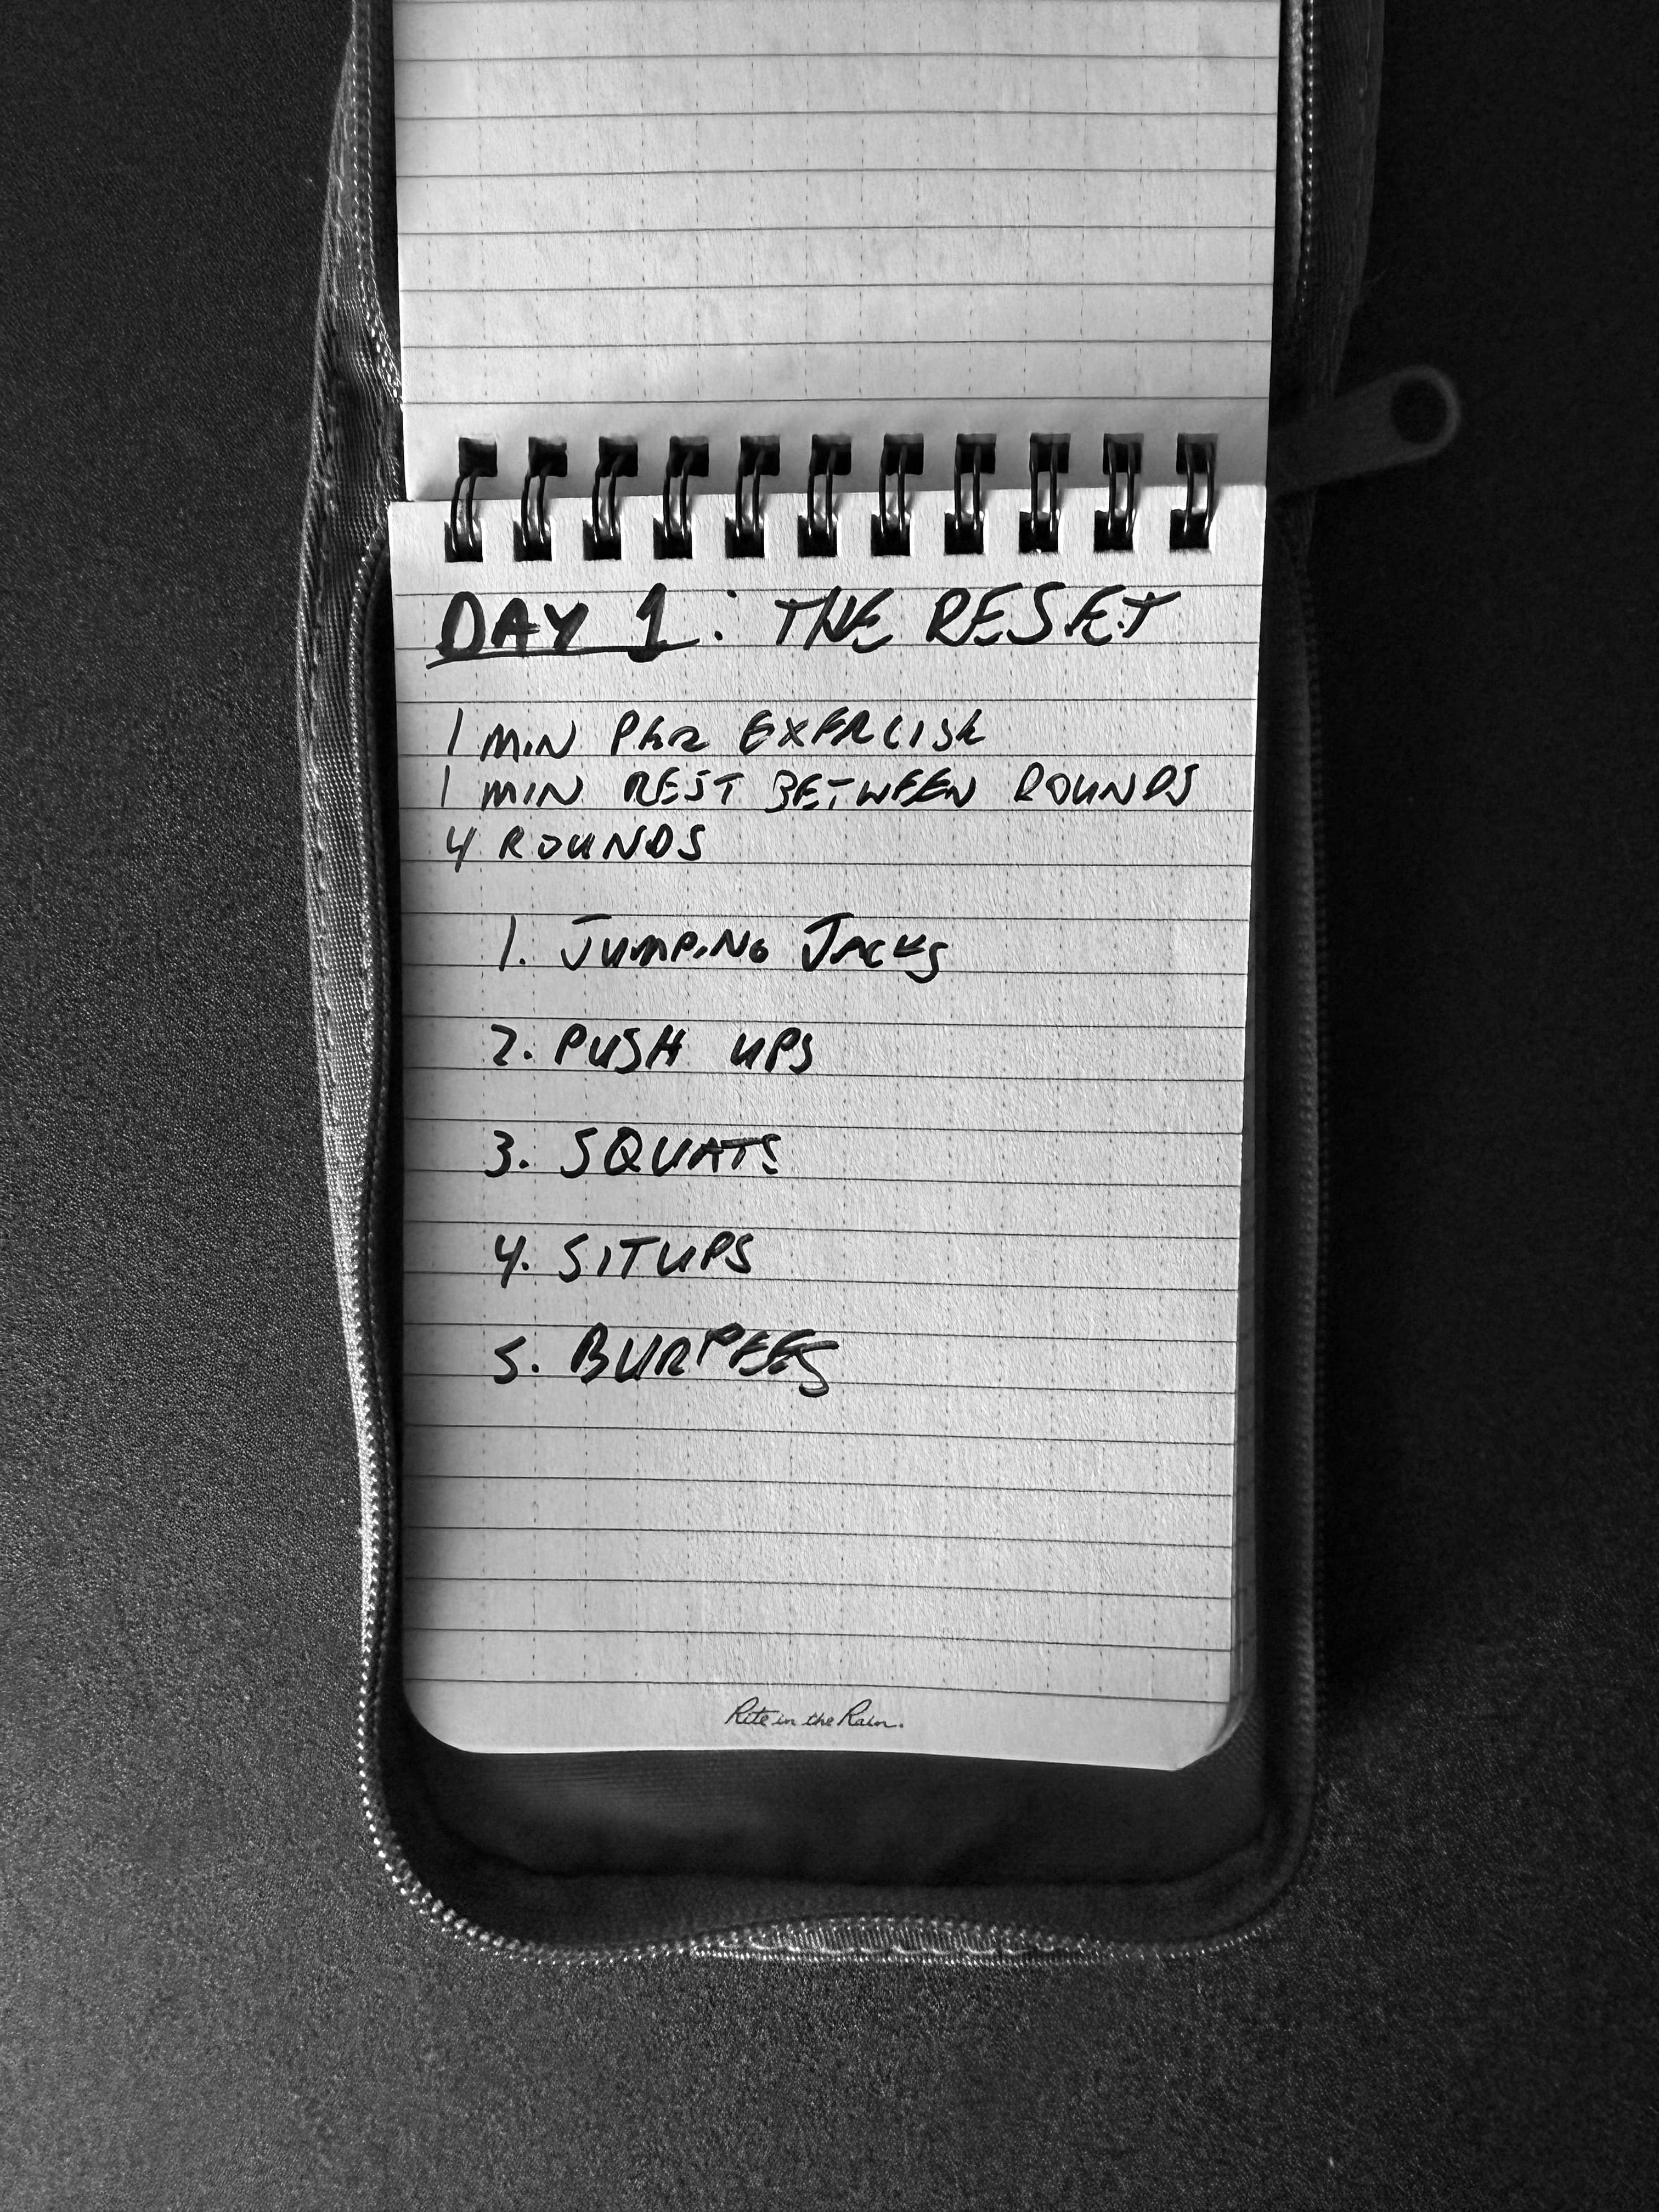 DAY 1: THE RESET
1 MIN PER EXERCISE
1 MIN REST BETWEEN ROUNDS
4 ROUNDS
1. JUMPING JACKS
2. PUSH UPS
3. SQUATS
4. SITUPS
5. BURPEES
Rite in the Rain.